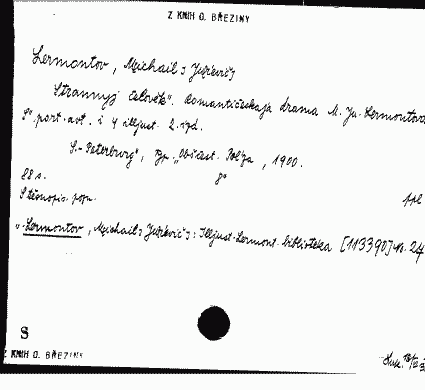 Z KNIH O. BŘEZINY
Lermontov, Michail Jur'evič
"Strannyj čelověk". Romantičeskaja drama M. Ju. Lermontova
S portr. avt. i 4 illjust. 2. izd.
S.-Peterburg", Tip. „Občšest. Pol'za, 1900.
88 s. 8°
S těsnopis. pozn. ppl
"Lermontov, Michail Jur'evič: Illjust. Lermont. biblioteka [113390] No. 24
S
Z KNIH O. BŘEZINY